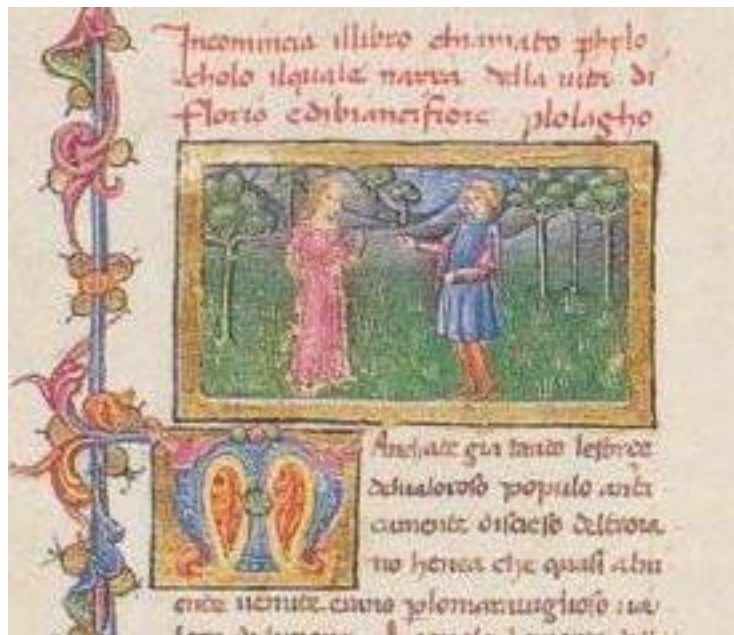 Incomincia illibro chiamato phylo
cholo ilquale narra della uita di
florio edibiancifiore plolagho
Anchate gia tanto leforçe
deualoroso populo anti
camente disceso deltroia
no henea che quasi abu
ente uenute erano plomarauiglioso ua